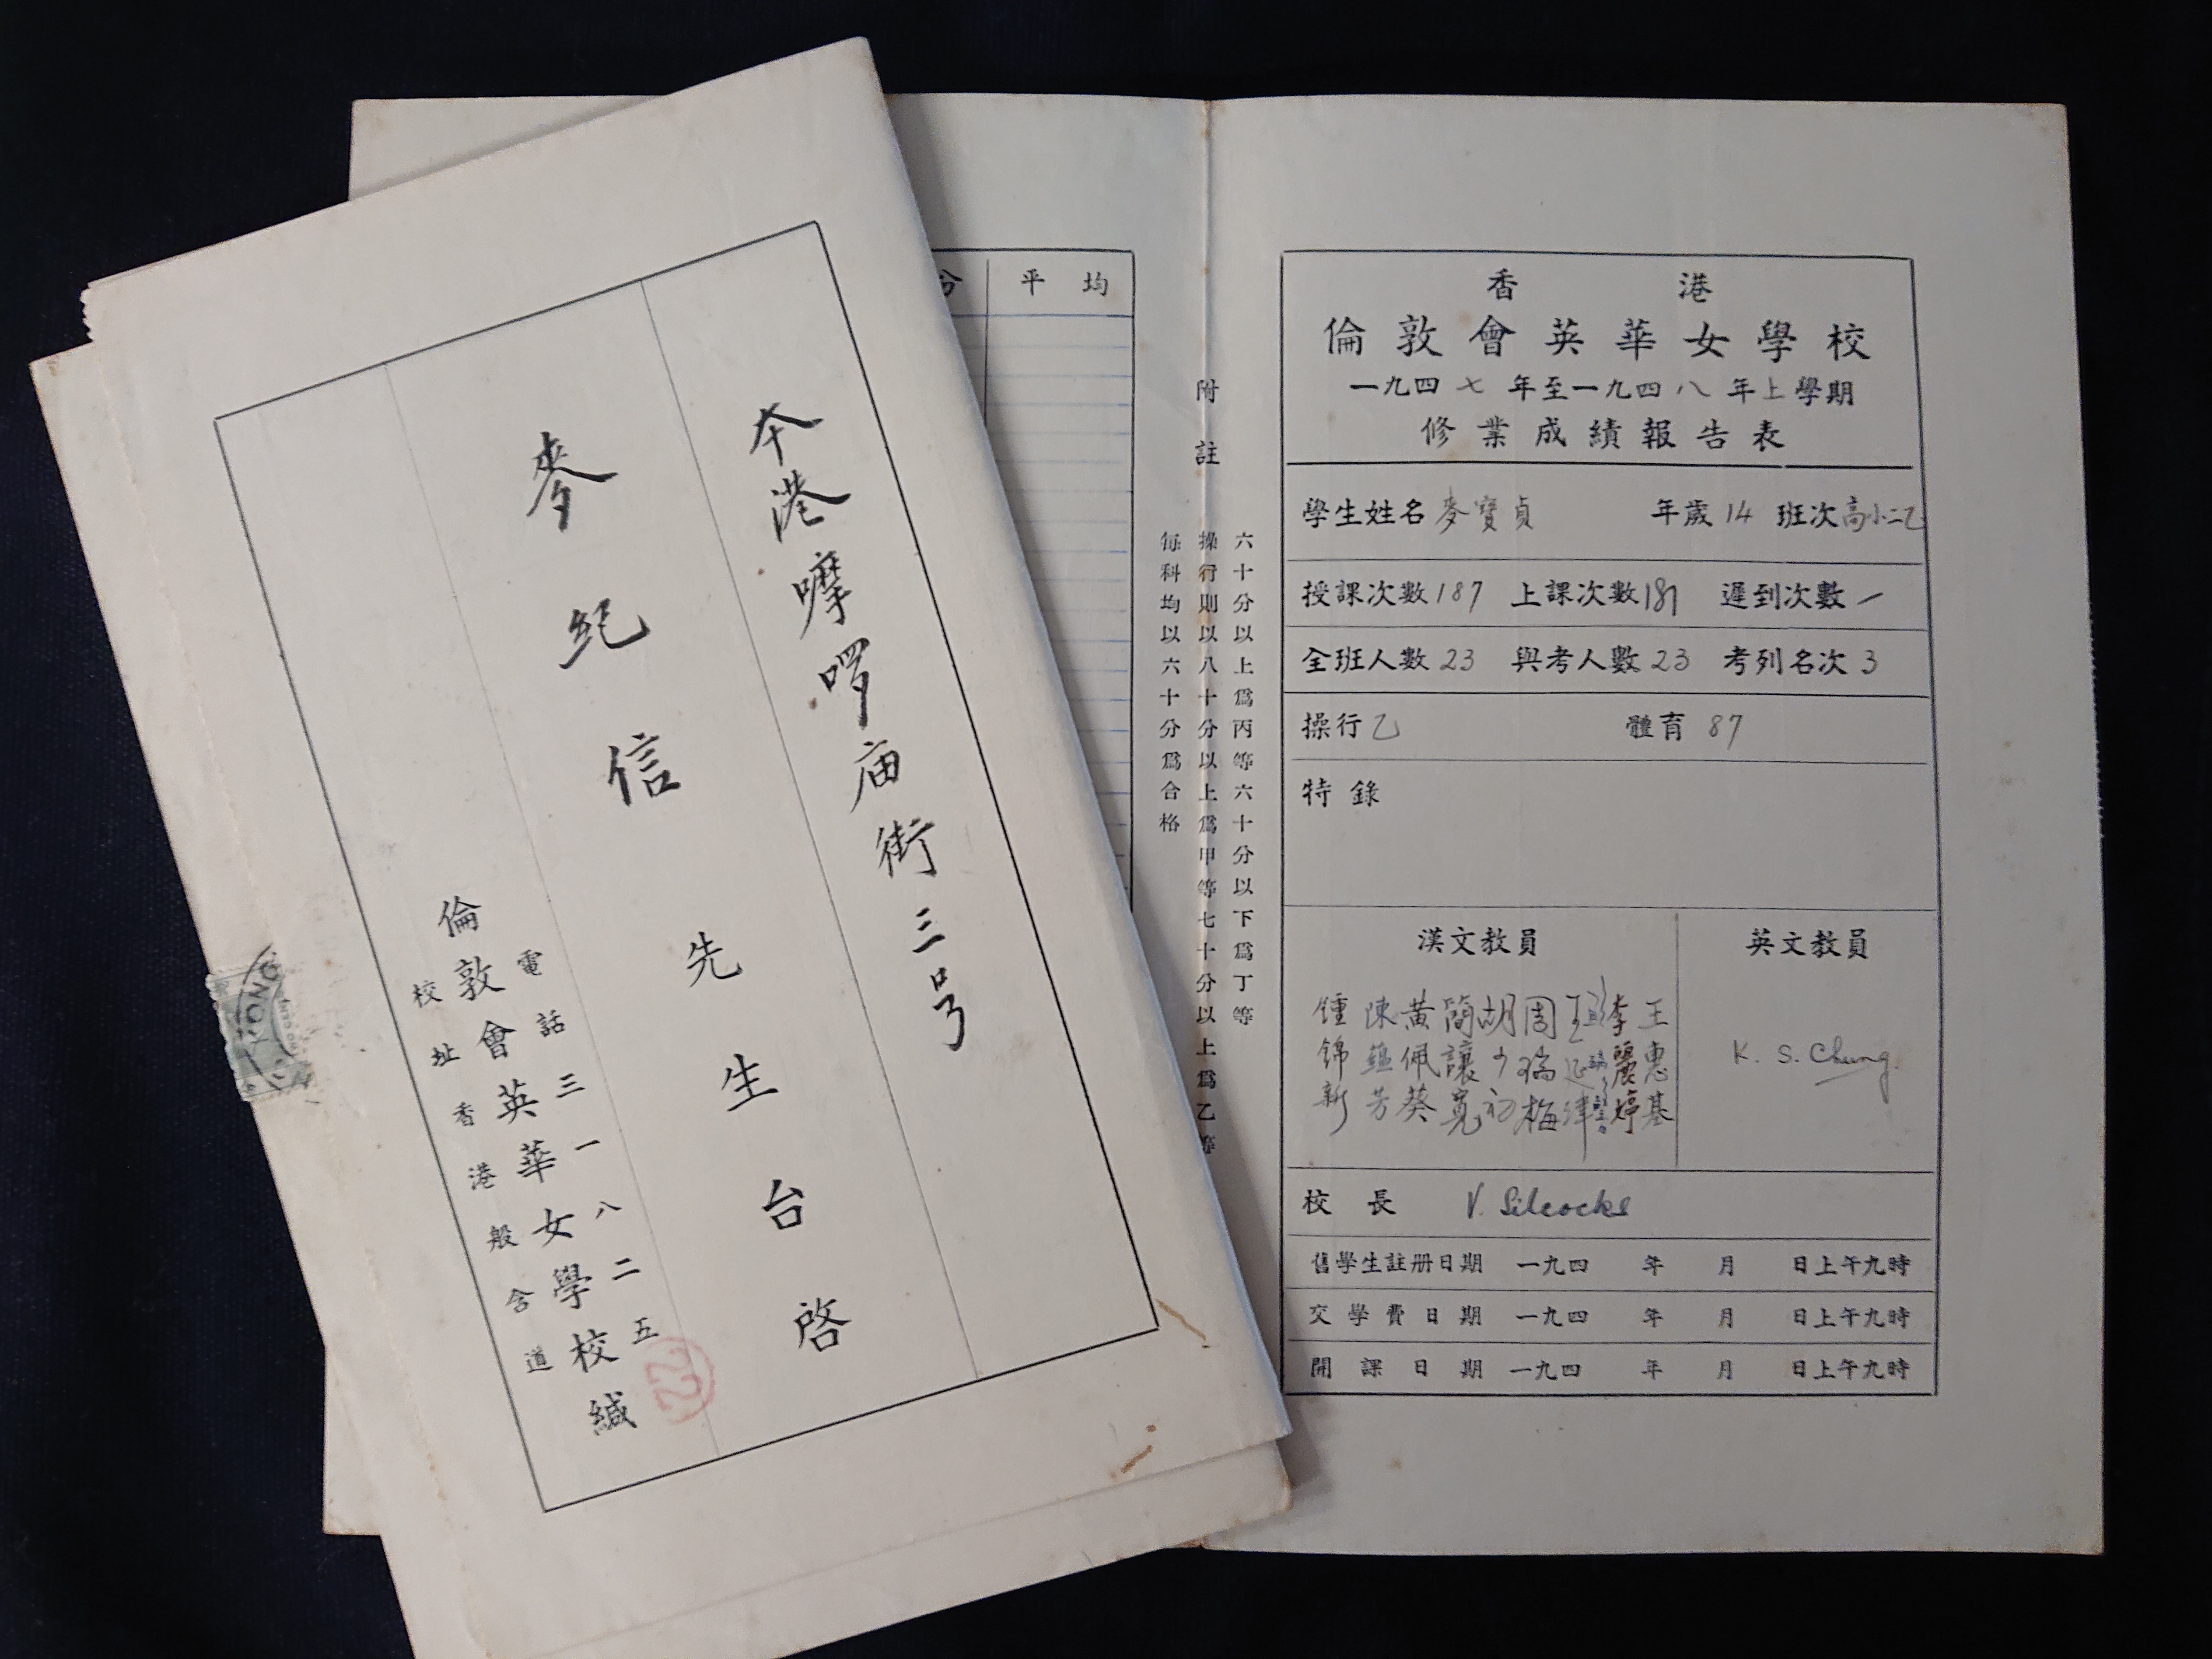 本港嚤啰庙街三号
麥紀信先生台啓
電話三一八二五
倫敦會英華女學校緘
校址香港般含道
KONG
分 平均
附註
六十分以上爲丙等六十分以下爲丁等
操行則以八十分以上爲甲等七十分以上爲乙等
每科均以六十分爲合格
香港
倫敦會英華女學校
一九四七年至一九四八年上學期
修業成績報告表
學生姓名 麥寶貞 年歲 14 班次 高小二乙
授課次數 187 上課次數 187 遲到次數 /
全班人數 23 與考人數 23 考列名次 3
操行 乙 體育 87
特錄
漢文教員 英文教員
王惠基
李麗婷
周瑞梅
胡少初
簡讓寬
黃佩葵
陳蘊芳
鍾錦新
K. S. Chung
校長 V. Silcocks
舊學生註册日期 一九四 年 月 日上午九時
交學費日期 一九四 年 月 日上午九時
開課日期 一九四 年 月 日上午九時